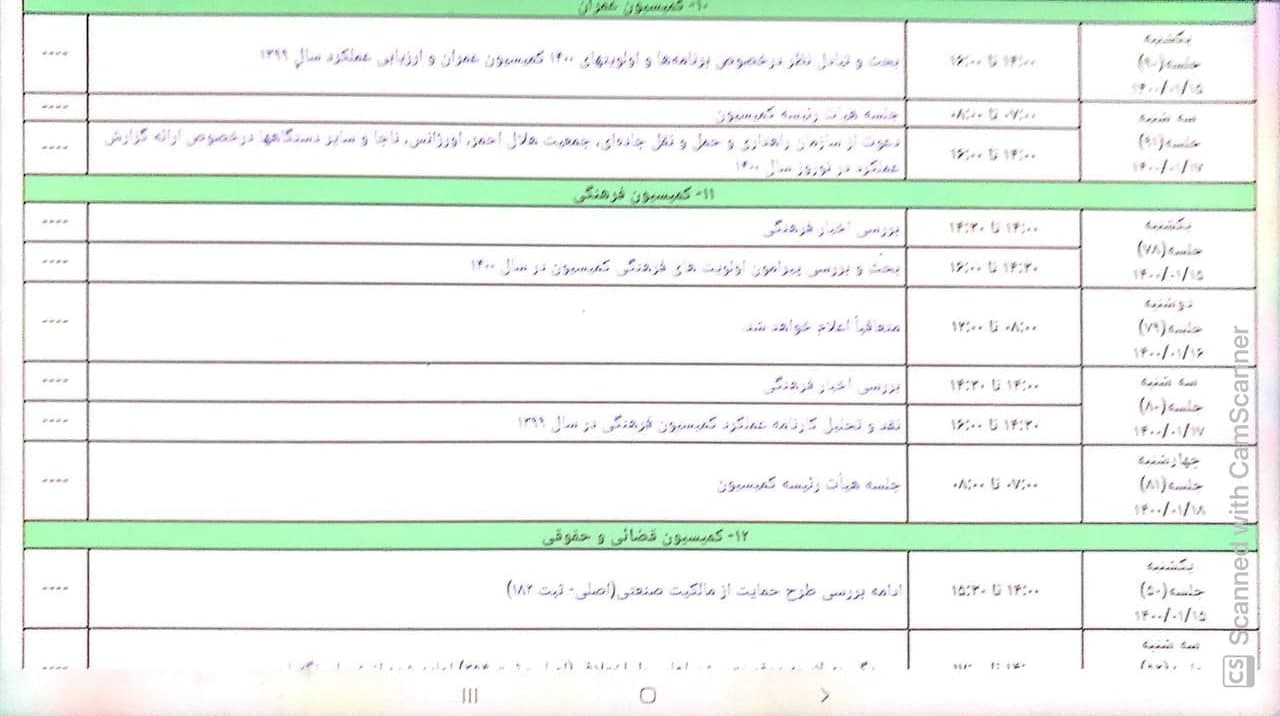 ۱۰- کمیسیون عمران
یکشنبه
جلسه(۹۰)
۱۴۰۰/۰۱/۱۵
۱۴:۰۰ تا ۱۶:۰۰
بحث و تبادل نظر درخصوص برنامه‌ها و اولویتهای ۱۴۰۰ کمیسیون عمران و ارزیابی عملکرد سال ۱۳۹۹
----
سه شنبه
جلسه(۹۱)
۱۴۰۰/۰۱/۱۷
۰۷:۰۰ تا ۰۸:۰۰
جلسه هیأت رئیسه کمیسیون
----
۱۴:۰۰ تا ۱۶:۰۰
دعوت از سازمان راهداری و حمل و نقل جاده‌ای، جمعیت هلال احمر، اورژانس، ناجا و سایر دستگاهها درخصوص ارائه گزارش
عملکرد در نوروز سال ۱۴۰۰
----
۱۱- کمیسیون فرهنگی
یکشنبه
جلسه(۷۸)
۱۴۰۰/۰۱/۱۵
۱۴:۰۰ تا ۱۴:۳۰
بررسی اخبار فرهنگی
----
۱۴:۳۰ تا ۱۶:۰۰
بحث و بررسی پیرامون اولویت های فرهنگی کمیسیون در سال ۱۴۰۰
----
دوشنبه
جلسه(۷۹)
۱۴۰۰/۰۱/۱۶
۰۸:۰۰ تا ۱۲:۰۰
متعاقباً اعلام خواهد شد.
----
سه شنبه
جلسه(۸۰)
۱۴۰۰/۰۱/۱۷
۱۴:۰۰ تا ۱۴:۳۰
بررسی اخبار فرهنگی
----
۱۴:۳۰ تا ۱۶:۰۰
نقد و تحلیل کارنامه عملکرد کمیسیون فرهنگی در سال ۱۳۹۹
----
چهارشنبه
جلسه(۸۱)
۱۴۰۰/۰۱/۱۸
۰۷:۰۰ تا ۰۸:۰۰
جلسه هیأت رئیسه کمیسیون
----
۱۲- کمیسیون قضائی و حقوقی
یکشنبه
جلسه(۵۰)
۱۴۰۰/۰۱/۱۵
۱۴:۰۰ تا ۱۵:۳۰
ادامه بررسی طرح حمایت از مالکیت صنعتی(اصلی- ثبت ۱۸۲)
----
سه شنبه
----
CS Scanned with CamScanner